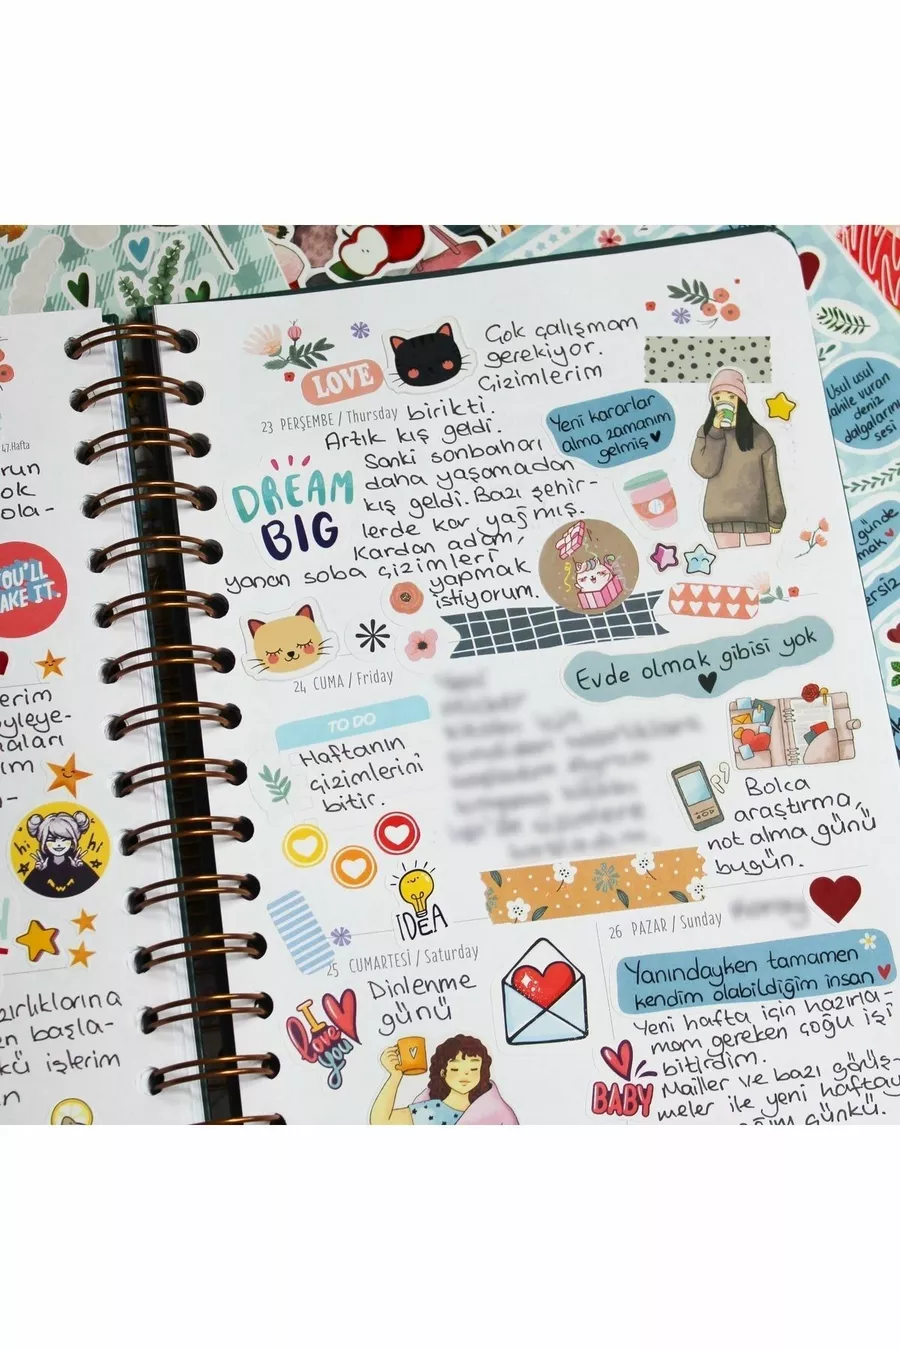 LOVE
Çok çalışmam
gerekiyor.
Çizimlerim
23 PERŞEMBE / Thursday birikti.
Artık kış geldi.
Sanki sonbaharı
daha yaşamadan
kış geldi. Bazı şehir-
lerde kar yağmış.
Kardan adam,
yanan soba çizimleri
yapmak
istiyorum.
DREAM
BIG
Yeni kararlar
alma zamanım
gelmiş
24 CUMA / Friday
TO DO
Haftanın
çizimlerini
bitir.
IDEA
Evde olmak gibisi yok
Bolca
araştırma,
not alma günü
bugün.
25 CUMARTESİ / Saturday
Dinlenme
günü
I
love
you
26 PAZAR / Sunday
Yanındayken tamamen
kendim olabildiğim insan
Yeni hafta için hazırla-
mam gereken çoğu işi
bitirdim.
Mailler ve bazı görüş-
meler ile yeni haftay
günkü.
BABY
47.Hafta
YOU'LL
MAKE IT.
erim
yleye-
maları
ım
hi
hi
zırlıklarına
en başla-
kü işlerim
Usul usul
sahile vuran
deniz
dalgalarını
sesi
günde